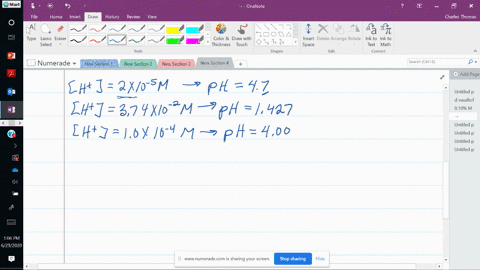 Start
OneNote
Charles Thomas
File
Home
Insert
Draw
History
Review
View
Type
Lasso Select
Eraser
Tools
Color & Thickness
Draw with Touch
Shapes
Insert Space
Delete
Arrange
Rotate
Edit
Ink to Text
Ink to Math
Convert
Numerade
New Section 1
New Section 2
New Section 3
New Section 4
Search (Ctrl+E)
Add Page
[H⁺] = 2 × 10⁻⁵ M → pH = 4.7
[H⁺] = 3.74 × 10⁻² M → pH = 1.427
[H⁺] = 1.0 × 10⁻⁴ M → pH = 4.00
Untitled p
0.10% M
Untitled p
Untitled p
Untitled p
Untitled p
1:06 PM
6/23/2020
www.numerade.com is sharing your screen.
Stop sharing
Hide